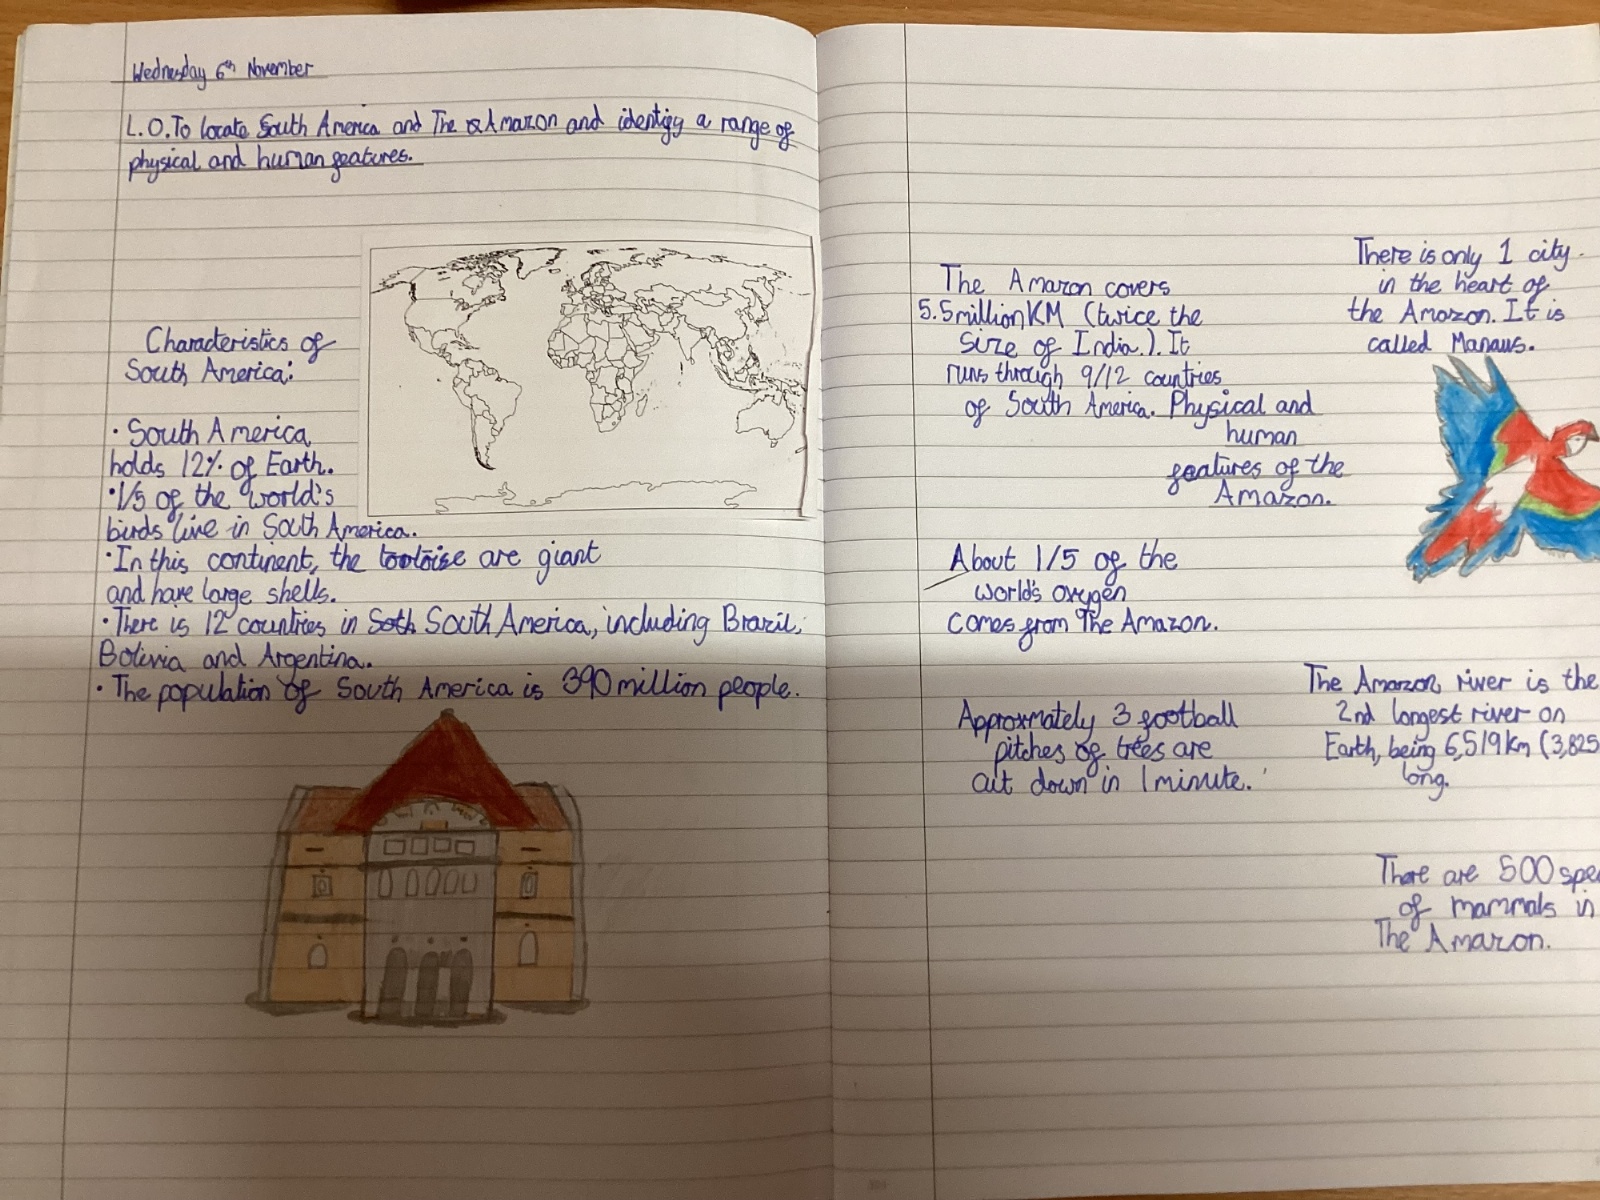 Wednesday 6th November
L.O. To locate South America and The Amazon and identify a range of
physical and human features.
Characteristics of
South America:
• South America
holds 12% of Earth.
• 1/5 of the world's
birds live in South America.
• In this continent, the tortoise are giant
and have large shells.
• There is 12 countries in Soth South America, including Brazil,
Bolivia and Argentina.
• The population of South America is 390 million people.
The Amazon covers
5.5million KM (twice the
size of India.). It
runs through 9/12 countries
of South America.
Physical and
human
features of the
Amazon.
There is only 1 city
in the heart of
the Amazon. It is
called Manaus.
About 1/5 of the
world's oxygen
comes from The Amazon.
Approxmately 3 football
pitches of trees are
cut down in 1 minute.
The Amazon river is the
2nd longest river on
Earth, being 6,519km (3,825
long.
There are 500 spe
of mammals in
The Amazon.